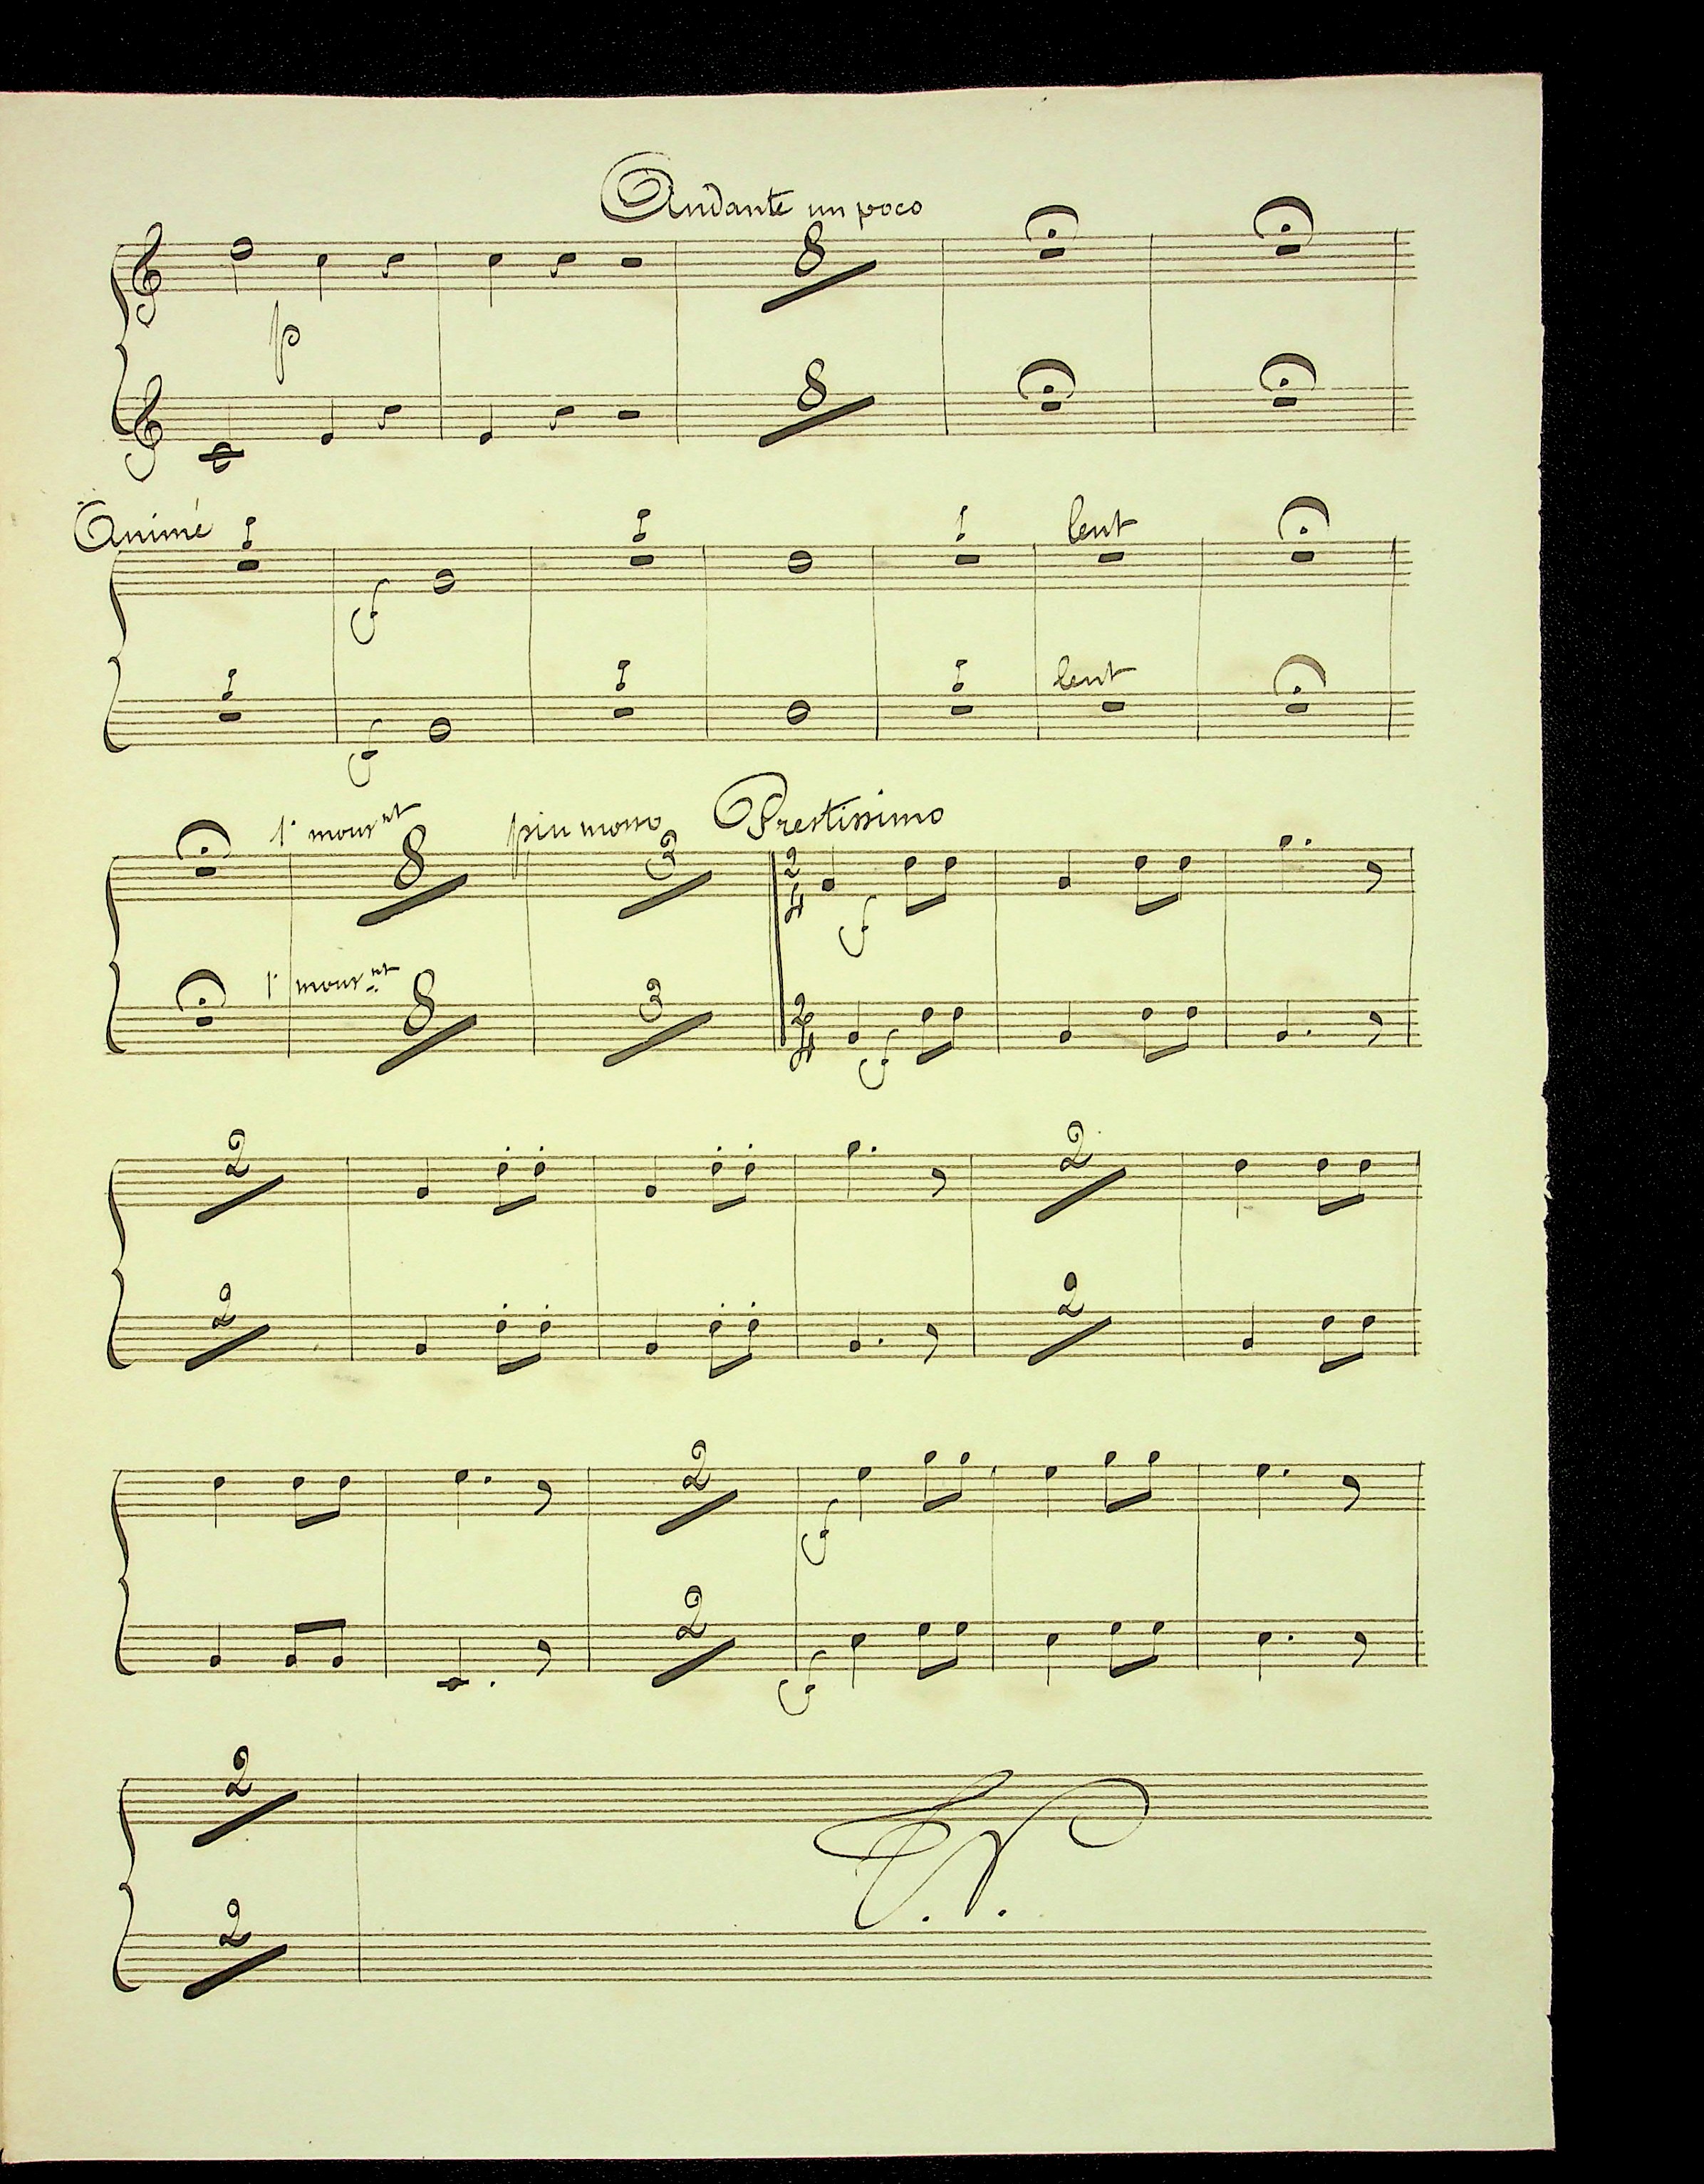 Andante un poco
8
p
8
Animé 1 1 1 lent
f
1 1 1 lent
f
1r mouvnt 8 piu mosso 3 Prestissimo
2 4 f
1r mouvnt 8 3
2 4 f
2 2
2 2
2
f
2
f
2
2